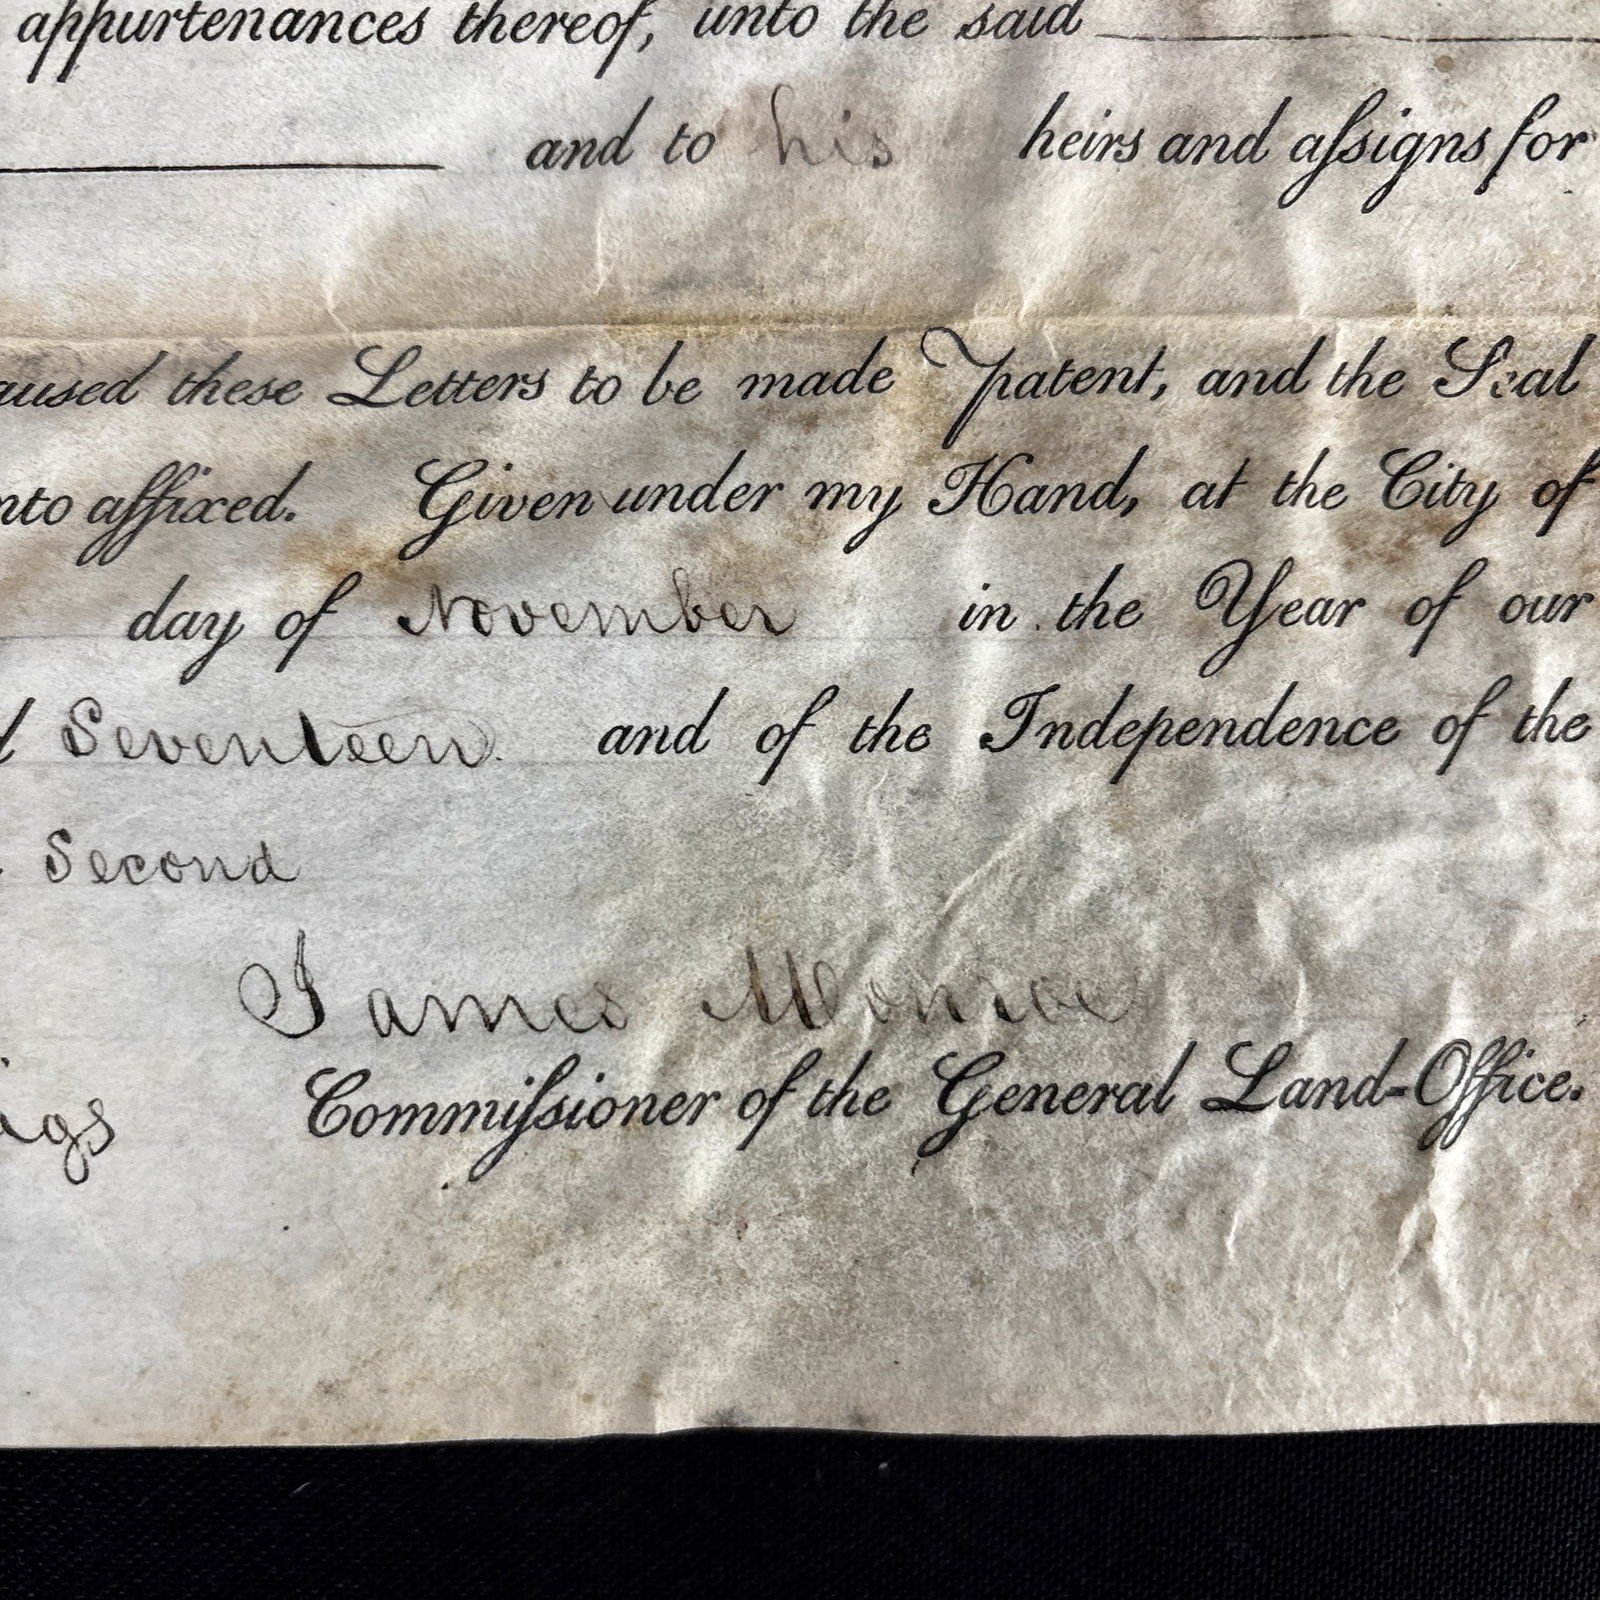 appurtenances thereof, unto the said
and to his heirs and aſsigns for
aused these Letters to be made patent, and the Seal
nto affixed. Given under my Hand, at the City of
day of November in the Year of our
d Seventeen and of the Independence of the
Second
James Monroe
igs Commiſsioner of the General Land-Office.